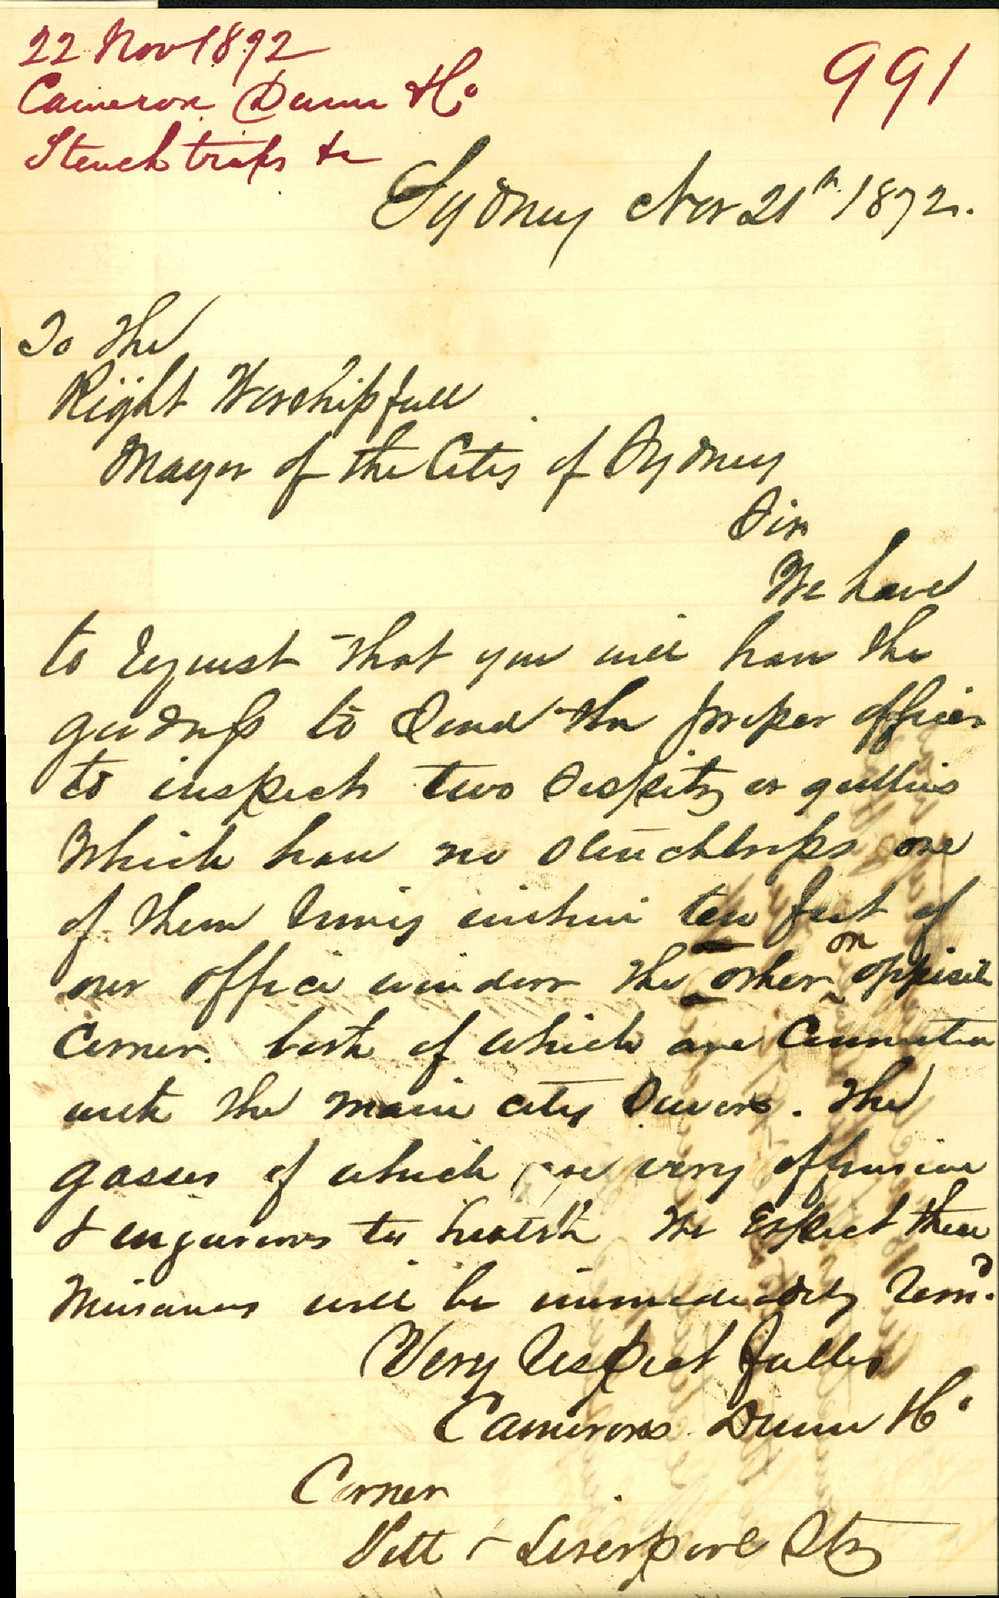 22 Nov 1872
991
Cameron Dunn & Co
Stench traps &c
Sydney Nov 21st 1872.
To The
Right Worshipfull
Mayor of the City of Sydney
Sir
We have
to request that you will have the
goodness to send the proper officer
to inspect two or gullies
Which have no stenchtraps one
of them being within ten feet of
our office window the other on opposite
corner. both of which are connected
with the main city sewers. The
gasses of which are very offensive
& injurious to health We Expect these
nuisances will be immediately Remd.
Very Respectfully
Camerons Dunn & Co
Corner
Pitt & Liverpool Sts